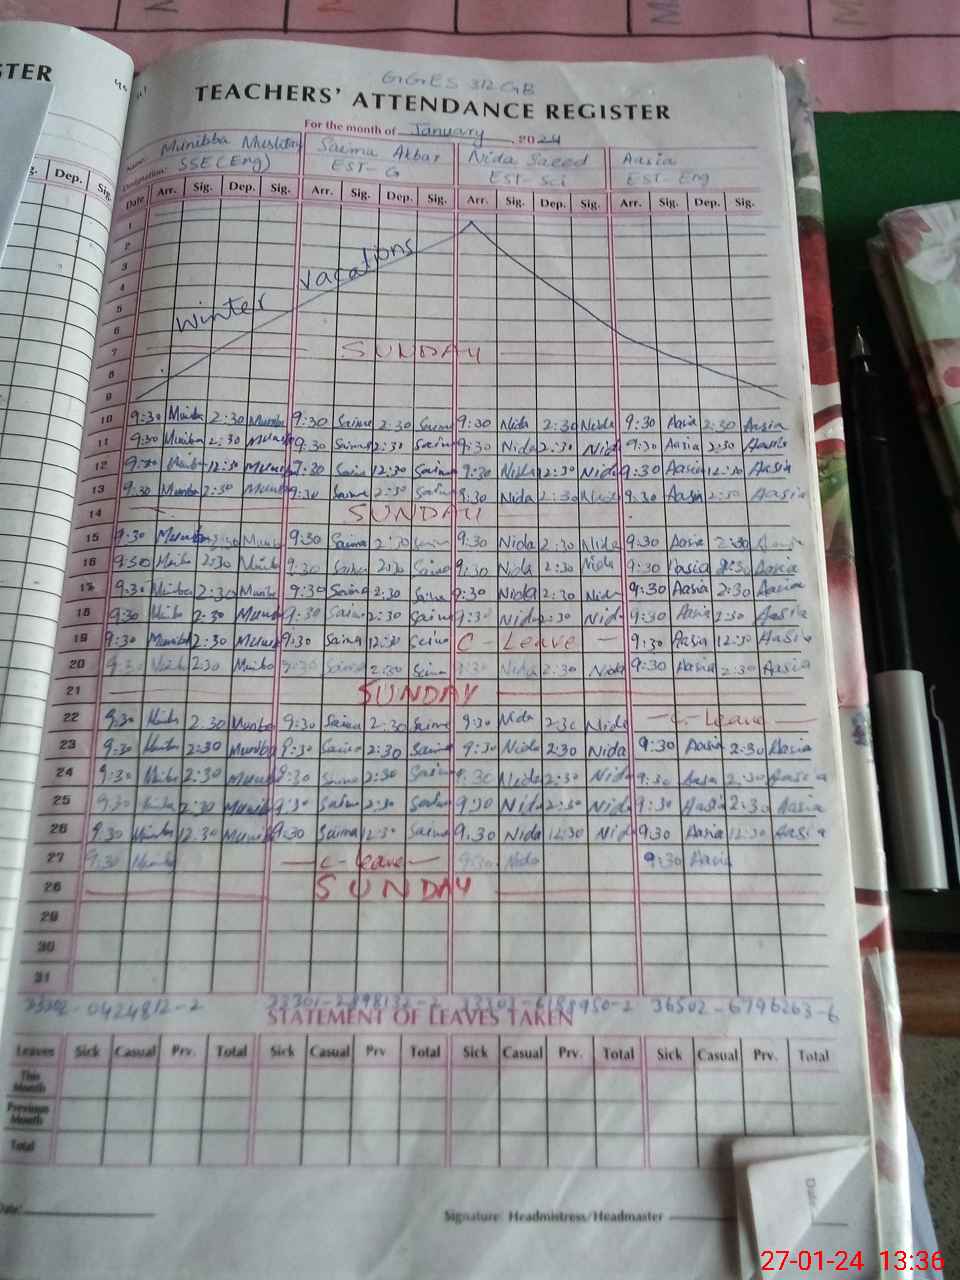 STER
Dep. Sig.
GGES 312 GB
TEACHERS' ATTENDANCE REGISTER
For the month of January 2024
Name: Munibba Mushtaq Saima Akbar Nida Saeed Aasia
Designation: SSE (Eng) EST-G EST-Sci EST-Eng
Date Arr. Sig. Dep. Sig. Arr. Sig. Dep. Sig. Arr. Sig. Dep. Sig. Arr. Sig. Dep. Sig.
1
2
3
4
5
winter vacations
6
7 SUNDAY
8
9
10 9:30 Muniba 2:30 Muniba 9:30 Saima 2:30 Saima 9:30 Nida 2:30 Nida 9:30 Aasia 2:30 Aasia
11 9:30 Muniba 2:30 Muniba 9:30 Saima 2:30 Saima 9:30 Nida 2:30 Nida 9:30 Aasia 2:30 Aasia
12 9:30 Muniba 12:30 Muniba 9:30 Saima 12:30 Saima 9:30 Nida 12:30 Nida 9:30 Aasia 12:30 Aasia
13 9:30 Muniba 2:30 Muniba 9:30 Saima 2:30 Saima 9:30 Nida 2:30 Nida 9:30 Aasia 2:30 Aasia
14 SUNDAY
15 9:30 Muniba 9:30 Saima 2:30 Saima 9:30 Nida 2:30 Nida 9:30 Aasia 2:30 Aasia
16 9:30 Muniba 2:30 Muniba 9:30 Saima 2:30 Saima 9:30 Nida 2:30 Nida 9:30 Aasia 2:30 Aasia
17 9:30 Muniba 2:30 Muniba 9:30 Saima 2:30 Saima 9:30 Nida 2:30 Nida 9:30 Aasia 2:30 Aasia
18 9:30 Muniba 2:30 Muniba 9:30 Saima 2:30 Saima 9:30 Nida 2:30 Nida 9:30 Aasia 2:30 Aasia
19 9:30 Muniba 2:30 Muniba 9:30 Saima 12:30 Saima C - Leave - 9:30 Aasia 12:30 Aasia
20 9:30 Muniba 2:30 Muniba 9:30 Saima 2:30 Saima 9:30 Nida 2:30 Nida 9:30 Aasia 2:30 Aasia
21 SUNDAY
22 9:30 Muniba 2:30 Muniba 9:30 Saima 2:30 Saima 9:30 Nida 2:30 Nida - C - Leave -
23 9:30 Muniba 2:30 Muniba 9:30 Saima 2:30 Saima 9:30 Nida 2:30 Nida 9:30 Aasia 2:30 Aasia
24 9:30 Muniba 2:30 Muniba 9:30 Saima 2:30 Saima 9:30 Nida 2:30 Nida 9:30 Aasia 2:30 Aasia
25 9:30 Muniba 2:30 Muniba 9:30 Saima 2:30 Saima 9:30 Nida 2:30 Nida 9:30 Aasia 2:30 Aasia
26 9:30 Muniba 12:30 Muniba 9:30 Saima 12:30 Saima 9:30 Nida 12:30 Nida 9:30 Aasia 12:30 Aasia
27 9:30 Muniba - C - leave - 9:30 Nida 9:30 Aasia
28 SUNDAY
29
30
31
STATEMENT OF LEAVES TAKEN
Leaves Sick Casual Prv. Total Sick Casual Prv Total Sick Casual Prv. Total Sick Casual Prv. Total
This Month
Previous Month
Total
Date: Signature: Headmistress/Headmaster
Date
27-01-24 13:36